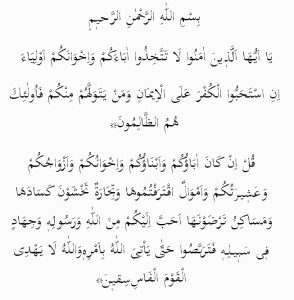 بِسْمِ اللّٰهِ الرَّحْمٰنِ الرَّحيمِ
يَا اَيُّهَا الَّذينَ اٰمَنُوا لَا تَتَّخِذُوا اٰبَاءَكُمْ وَاِخْوَانَكُمْ اَوْلِيَاءَ
اِنِ اسْتَحَبُّوا الْكُفْرَ عَلَى الْايمَانِ وَمَنْ يَتَوَلَّهُمْ مِنْكُمْ فَاُولٰئِكَ
هُمُ الظَّالِمُونَ
قُلْ اِنْ كَانَ اٰبَاؤُكُمْ وَاَبْنَاؤُكُمْ وَاِخْوَانُكُمْ وَاَزْوَاجُكُمْ
وَعَشيرَتُكُمْ وَاَمْوَالٌ اقْتَرَفْتُمُوهَا وَتِجَارَةٌ تَخْشَوْنَ كَسَادَهَا
وَمَسَاكِنُ تَرْضَوْنَهَا اَحَبَّ اِلَيْكُمْ مِنَ اللّٰهِ وَرَسُولِه وَجِهَادٍ
فى سَبيلِه فَتَرَبَّصُوا حَتّٰى يَاْتِىَ اللّٰهُ بِاَمْرِه وَاللّٰهُ لَا يَهْدِى
الْقَوْمَ الْفَاسِقينَ